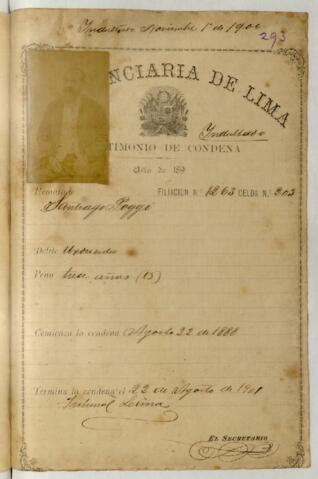 Indultado Noviembre 1º de 1900
293
NCIARIA DE LIMA
Indultado
TIMONIO DE CONDENA
Año de 189
Rematado FILIACION N.º 1263 CELDA N.º 203
Santiago Poggi
Delito Uxoricidio
Pena trece años (13)
Comienza la condena Agosto 22 de 1888
Termina la condena el 22 de Agosto de 1901
Tribunal Lima
EL SECRETARIO